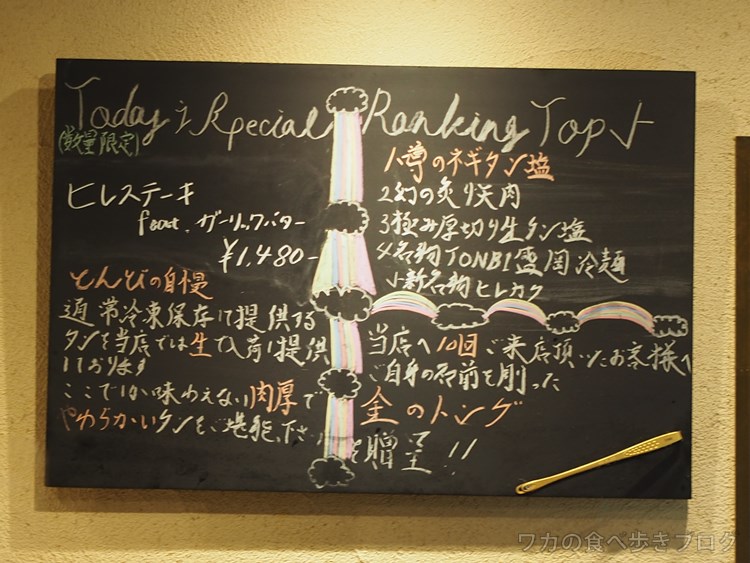 Today's Special
(数量限定)
ヒレステーキ
feat. ガーリックバター
¥1,480-
とんびの自慢
通常冷凍保存で提供する
タンを当店では生で入荷し提供
しております
ここでしか味わえない肉厚で
やわらかいタンをご堪能下さい
Ranking Top5
1噂のネギタン塩
2幻の炙り天肉
3極み厚切り生タン塩
4名物TONBI盛岡冷麺
5新名物ヒレカツ
当店へ10回ご来店頂いたお客様へ
ご自身の名前を刷った
金のトング
を贈呈!!
ワカの食べ歩きブログ